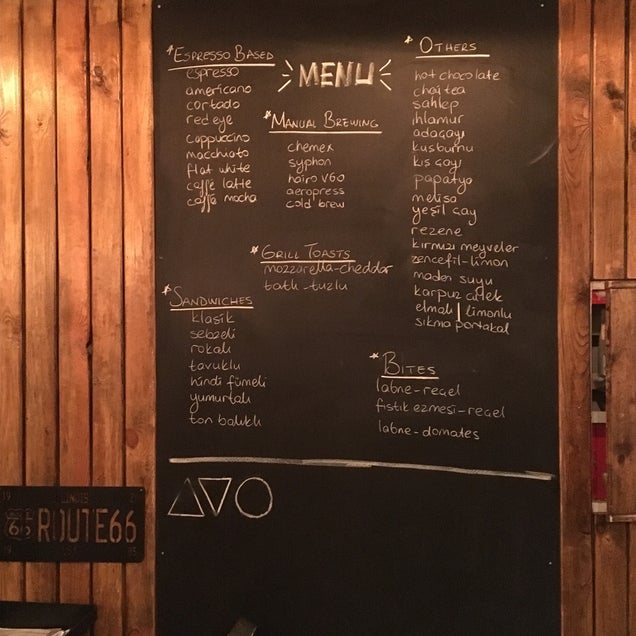 MENU
* ESPRESSO BASED
espresso
americano
cortado
red eye
cappuccino
macchiato
flat white
caffè latte
caffè mocha
* MANUAL BREWING
chemex
syphon
hairo V60
aeropress
cold brew
* GRILL TOASTS
mozzarella-cheddar
tatlı-tuzlu
* SANDWICHES
klasik
sebzeli
rokalı
tavuklu
hindi fümeli
yumurtalı
ton balıklı
* OTHERS
hot chocolate
chai tea
sahlep
ıhlamur
adaçayı
kuşburnu
kış çayı
papatya
melisa
yeşil çay
rezene
kırmızı meyveler
zencefil-limon
maden suyu
karpuz çilek
elmalı | limonlu
sıkma portakal
* BITES
labne-reçel
fıstık ezmesi-reçel
labne-domates
ILLINOIS
66 ROUTE66